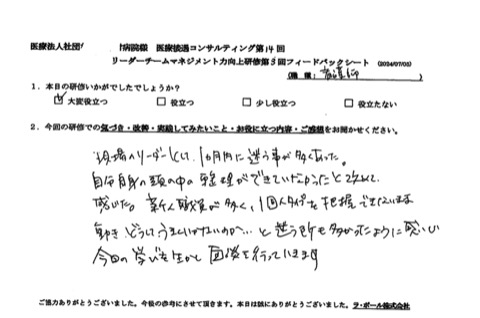 医療法人社団 病院様 医療接遇コンサルティング第14回
リーダーチームマネジメント力向上研修第3回フィードバックシート (2024/07/03)
(職種: 看護師 )
1.本日の研修いかがでしたでしょうか?
☑ 大変役立つ □ 役立つ □ 少し役立つ □ 役立たない
2.今回の研修での気づき・改善・実践してみたいこと・お役に立つ内容・ご感想をお聞かせください。
現場のリーダーとして、1ヶ月間に迷う事が多くあった。
自分自身の頭の中の整理ができていなかったと改めて
感じた。新人職員が多く、1人1人タイプを把握できないまま
動き どうしてうまくいかないのか…と迷う所も多かったように思い
今日の学びを生かして 回答を行っていきます
ご協力ありがとうございました。今後の参考にさせて頂きます。本日は誠にありがとうございました。ラ・ポール株式会社